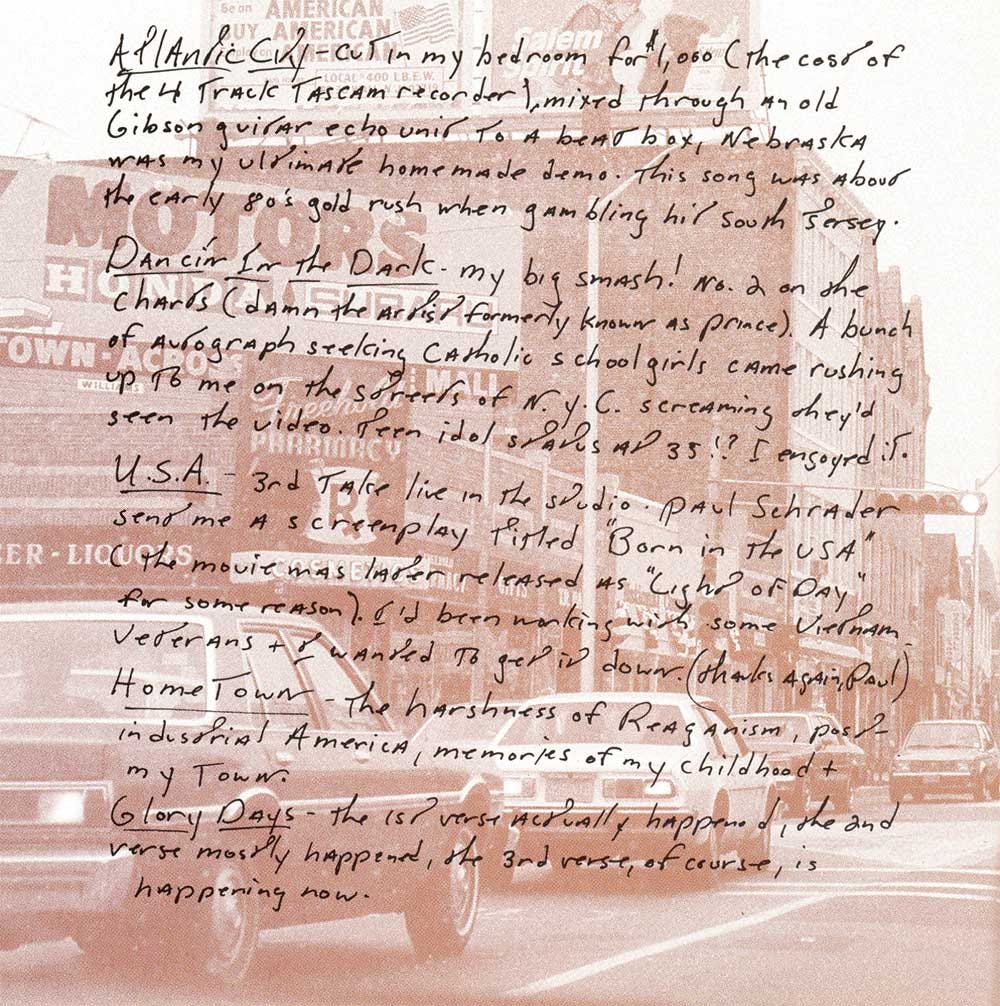 Be on AMERICAN
BUY AMERICAN
AMERICAN
LOCAL 400 I.B.E.W.
Salem
Spirit
Atlantic City - cut in my bedroom for $1,000 (the cost of
the 4 Track Tascam recorder), mixed through an old
Gibson guitar echo unit to a beat box, Nebraska
was my ultimate homemade demo. This song was about
the early 80's gold rush when gambling hit South Jersey.
Dancin In the Dark - my big smash! No. 2 on the
charts (damn the artist formerly known as prince). A bunch
of autograph seeking Catholic schoolgirls came rushing
up to me on the streets of N.Y.C. screaming they'd
seen the video. Teen idol status at 35!? I engoyed it.
U.S.A. - 3rd Take live in the studio. Paul Schrader
sent me a screenplay titled "Born in the USA"
(the movie was later released as "Light of Day"
for some reason). I'd been working with some Vietnam
Veterans + I wanted to get it down. (thanks again, Paul)
HomeTown - the harshness of Reaganism, post-
industrial America, memories of my childhood +
my Town.
Glory Days - the 1st verse actually happened, the 2nd
verse mostly happened, the 3rd verse, of course, is
happening now.
MOTORS
HONDA SUBARU
TOWN-ACROSS
WILLIAMS
MALL
Freehold
PHARMACY
R
LIQUORS
COSMETICS
GIFTS